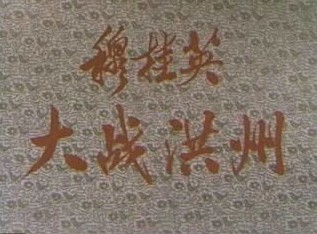 穆桂英
大战洪州